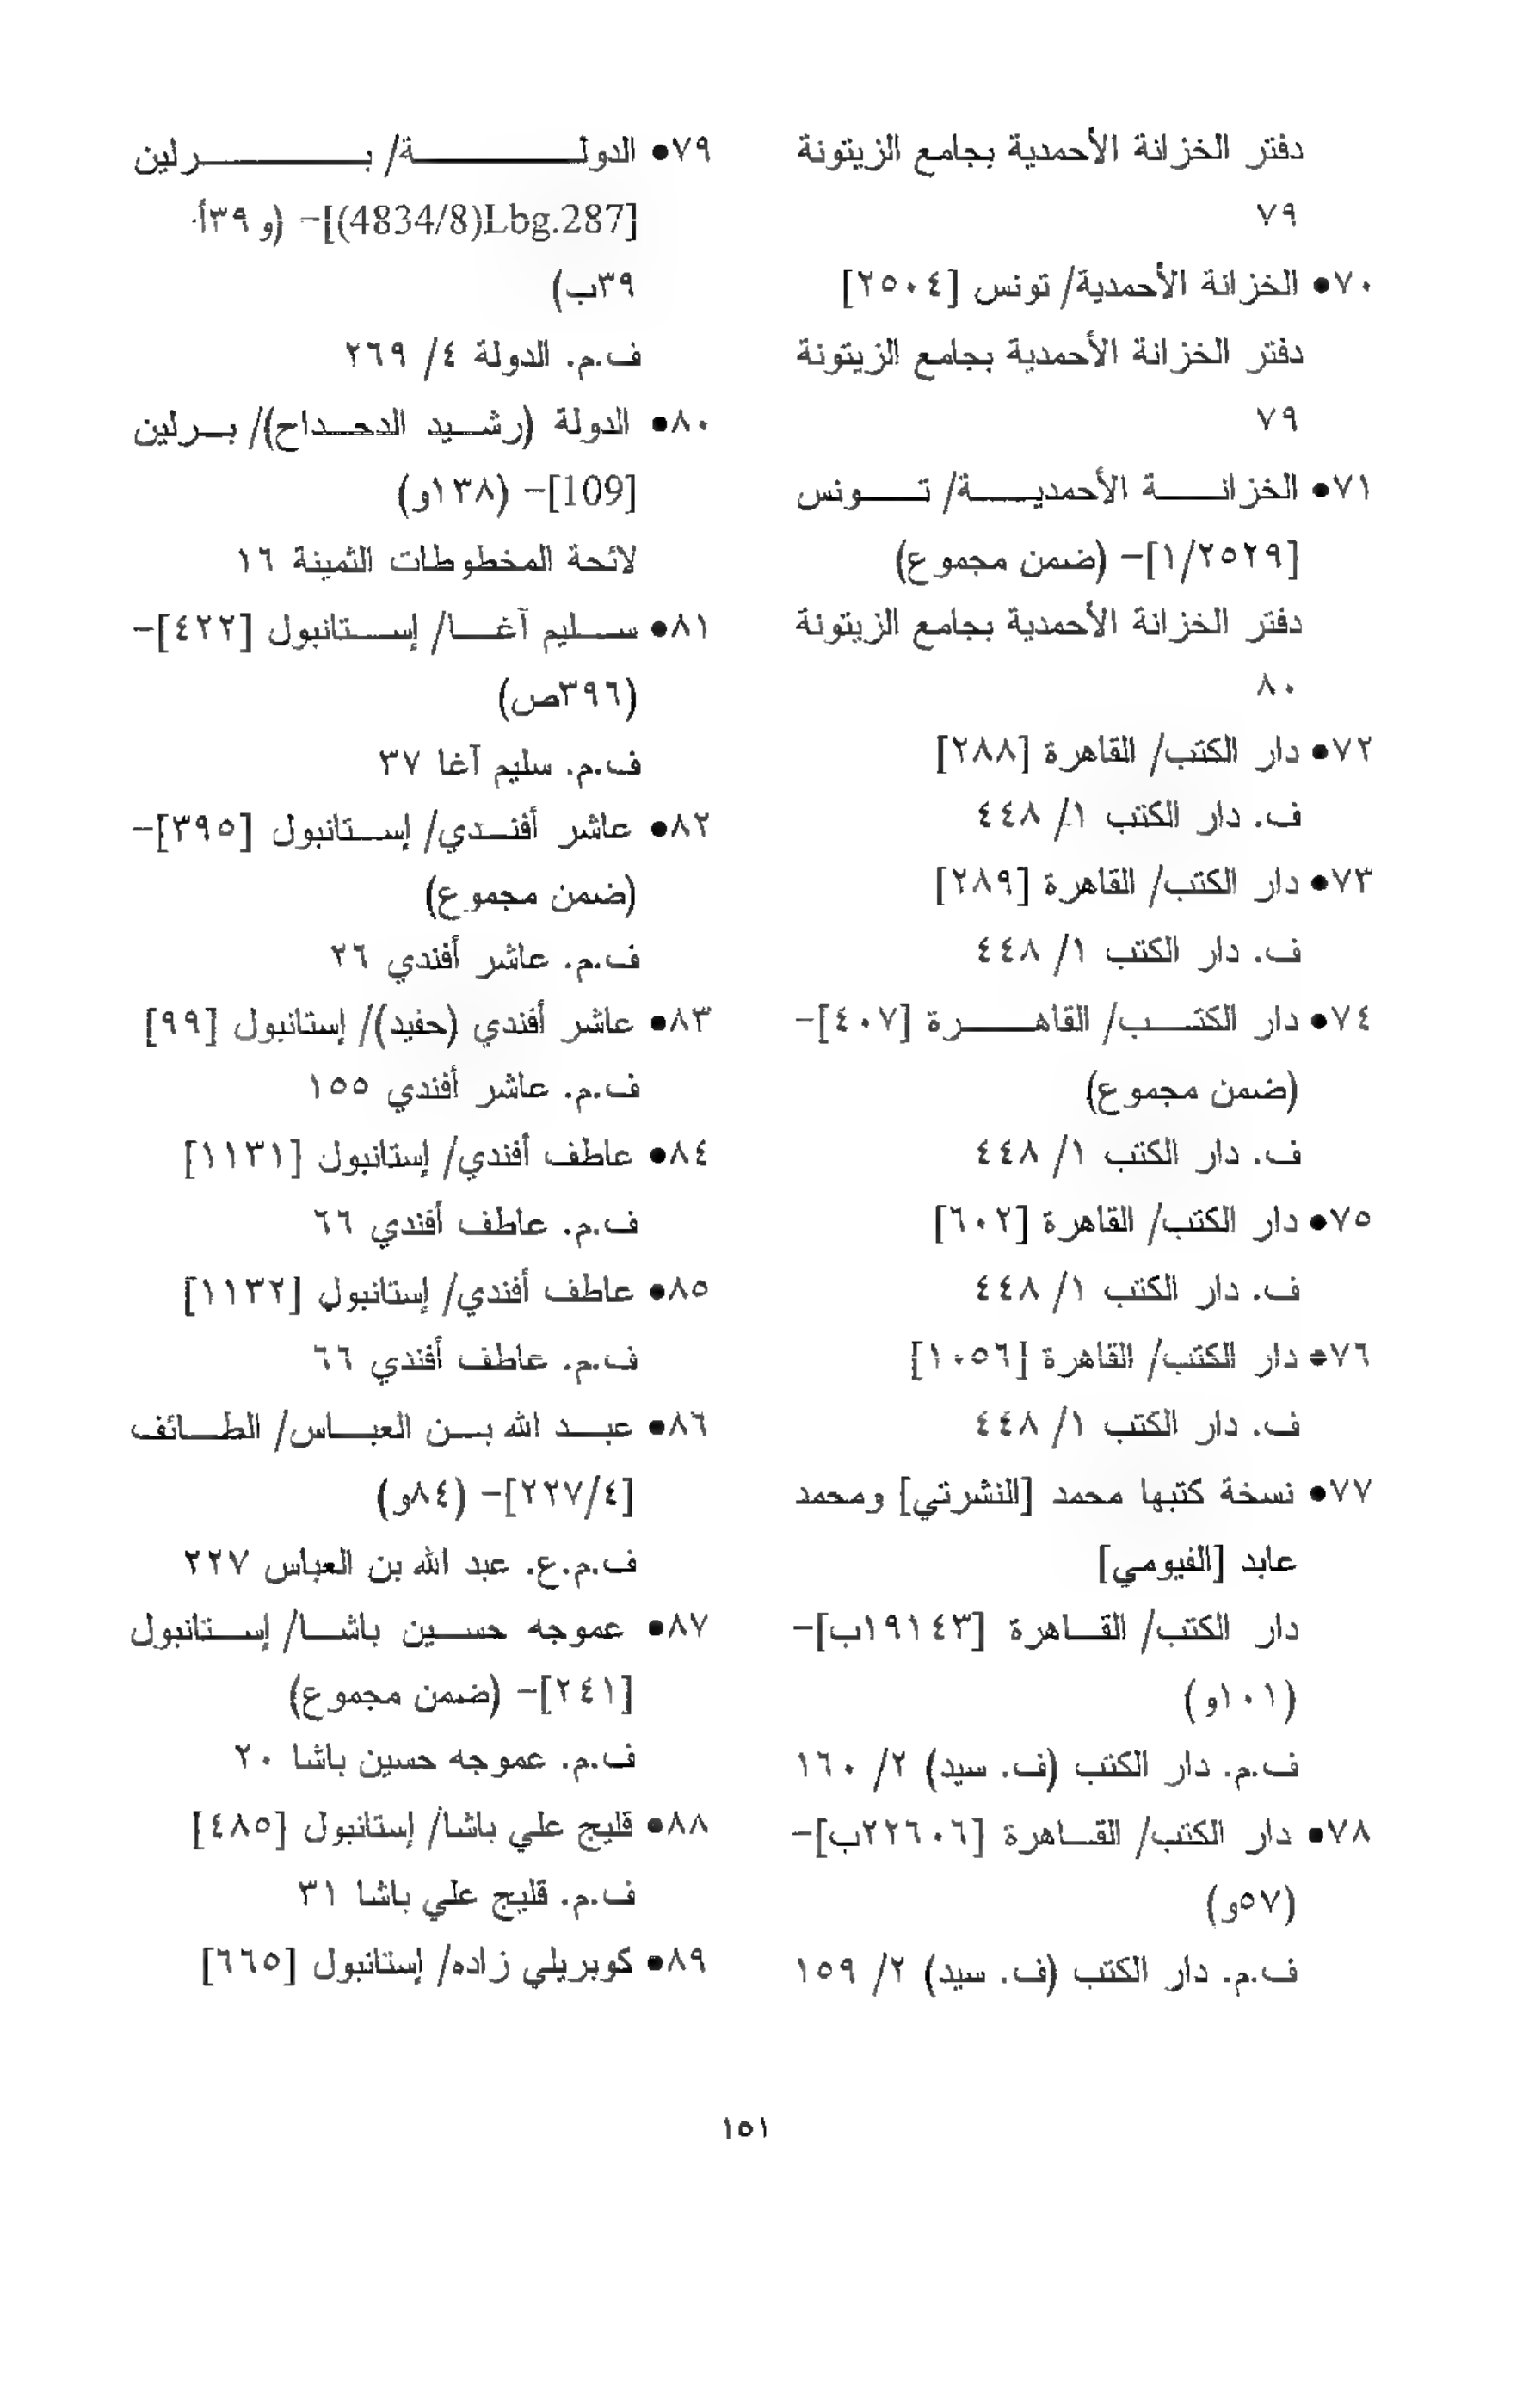 دفتر الخزانة الأحمدية بجامع الزيتونة
٧٩
٧٠● الخزانة الأحمدية/ تونس [٢٥٠٤]
دفتر الخزانة الأحمدية بجامع الزيتونة
٧٩
٧١● الخزانة الأحمدية/ تونس
[١/٢٥٢٩]- (ضمن مجموع)
دفتر الخزانة الأحمدية بجامع الزيتونة
٨٠
٧٢● دار الكتب/ القاهرة [٢٨٨]
ف. دار الكتب ١/ ٤٤٨
٧٣● دار الكتب/ القاهرة [٢٨٩]
ف. دار الكتب ١/ ٤٤٨
٧٤● دار الكتب/ القاهرة [٤٠٧]-
(ضمن مجموع)
ف. دار الكتب ١/ ٤٤٨
٧٥● دار الكتب/ القاهرة [٦٠٢]
ف. دار الكتب ١/ ٤٤٨
٧٦● دار الكتب/ القاهرة [١٠٥٦]
ف. دار الكتب ١/ ٤٤٨
٧٧● نسخة كتبها محمد [النشرتي] ومحمد
عابد [الفيومي]
دار الكتب/ القاهرة [١٩١٤٣ب]-
(١٠١و)
ف.م. دار الكتب (ف. سيد) ٢/ ١٦٠
٧٨● دار الكتب/ القاهرة [٢٢٦٠٦ب]-
(٥٧و)
ف.م. دار الكتب (ف. سيد) ٢/ ١٥٩
٧٩● الدولة/ برلين
[Lbg.287(4834/8)]- (و ٣٩أ-
٣٩ب)
ف.م. الدولة ٤/ ٢٦٩
٨٠● الدولة (رشيد الدحداح)/ برلين
[109]- (١٣٨و)
لائحة المخطوطات الثمينة ١٦
٨١● سليم آغا/ إستانبول [٤٢٢]-
(٣٩٦ص)
ف.م. سليم آغا ٣٧
٨٢● عاشر أفندي/ إستانبول [٣٩٥]-
(ضمن مجموع)
ف.م. عاشر أفندي ٢٦
٨٣● عاشر أفندي (حفيد)/ إستانبول [٩٩]
ف.م. عاشر أفندي ١٥٥
٨٤● عاطف أفندي/ إستانبول [١١٣١]
ف.م. عاطف أفندي ٦٦
٨٥● عاطف أفندي/ إستانبول [١١٣٢]
ف.م. عاطف أفندي ٦٦
٨٦● عبد الله بن العباس/ الطائف
[٢٢٧/٤]- (٨٤و)
ف.م.ع. عبد الله بن العباس ٢٢٧
٨٧● عموجه حسين باشا/ إستانبول
[٢٤١]- (ضمن مجموع)
ف.م. عموجه حسين باشا ٢٠
٨٨● قليج علي باشا/ إستانبول [٤٨٥]
ف.م. قليج علي باشا ٣١
٨٩● كوبريلي زاده/ إستانبول [٦٦٥]
١٥١